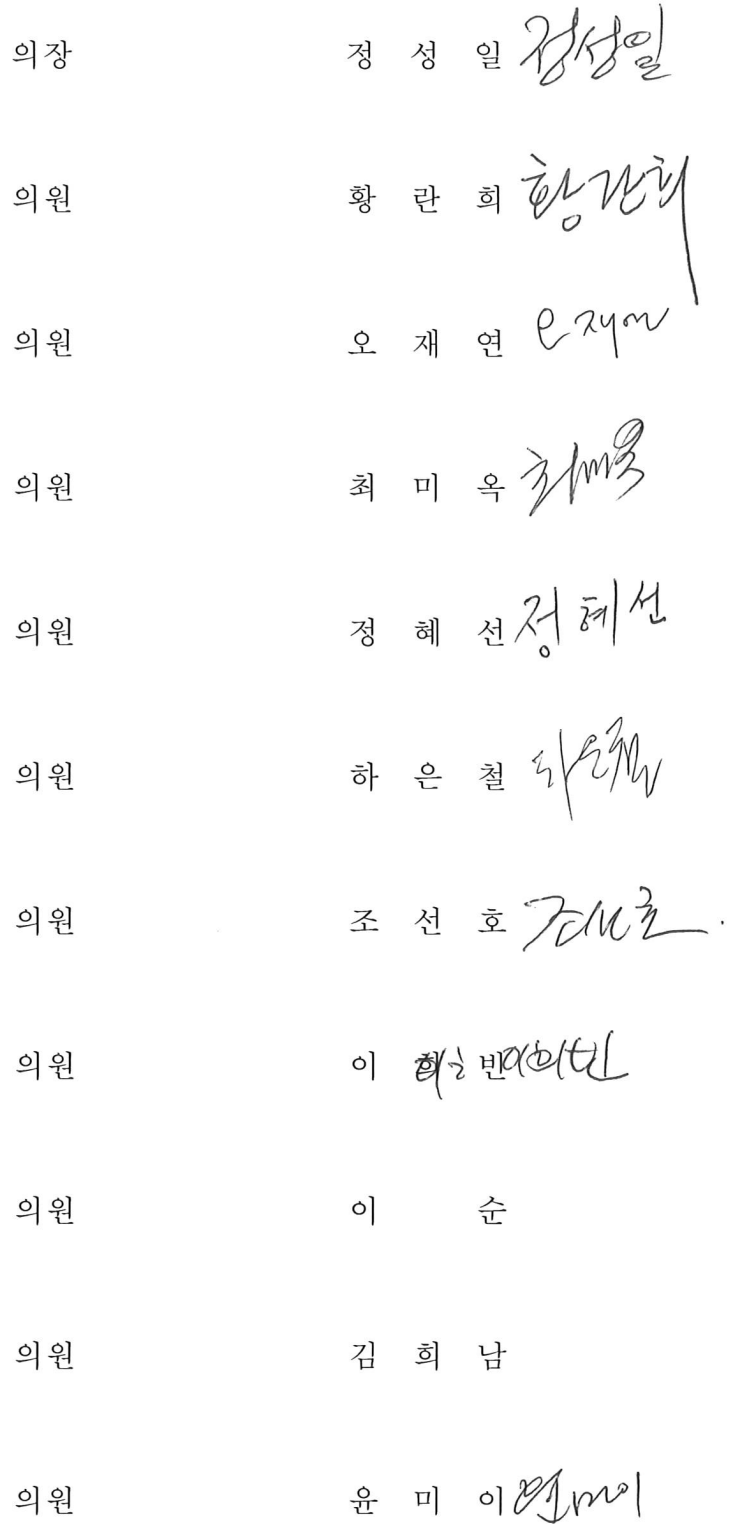 의장 정 성 일 정성일
의원 황 란 희 황란희
의원 오 재 연 오재연
의원 최 미 옥 최미옥
의원 정 혜 선 정혜선
의원 하 은 철 하은철
의원 조 선 호 조선호
의원 이 희 빈 이희빈
의원 이 순
의원 김 희 남
의원 윤 미 이 윤미이